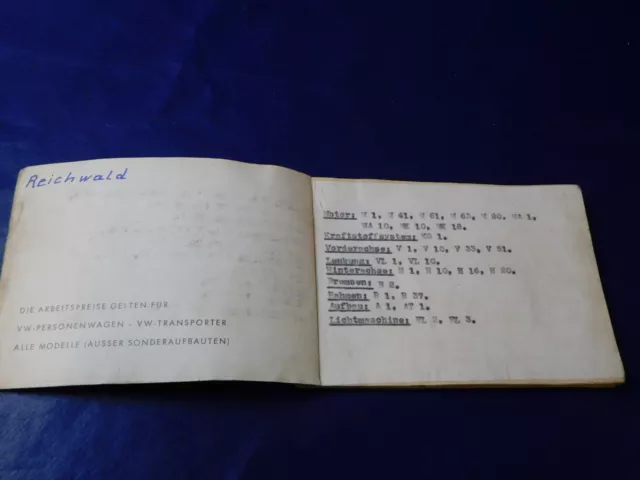 Reichwald
DIE ARBEITSPREISE GELTEN FÜR
VW-PERSONENWAGEN - VW-TRANSPORTER
ALLE MODELLE (AUSSER SONDERAUFBAUTEN)
Motor: M 1, M 41, M 61, M 63, M 80, MA 1,
MA 10, MK 10, MK 18.
Kraftstoffsystem: KS 1.
Vorderachse: V 1, V 10, V 33, V 51.
Lenkung: VL 1, VL 10.
Hinterachse: H 1, H 10, H 16, H 20.
Bremsen: B 2.
Rahmen: R 1, R 37.
Aufbau: A 1, AT 1.
Lichtmaschine: EL 2, EL 3.